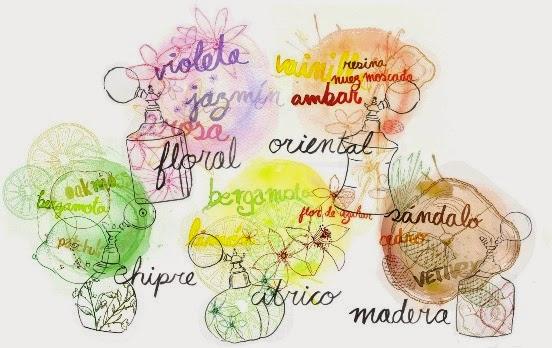 violeta
jazmín
rosa
floral
vainilla
resina
nuez moscada
ambar
oriental
bergamota
chipre
bergamota
flor de azahar
cítrico
sándalo
cedro
madera